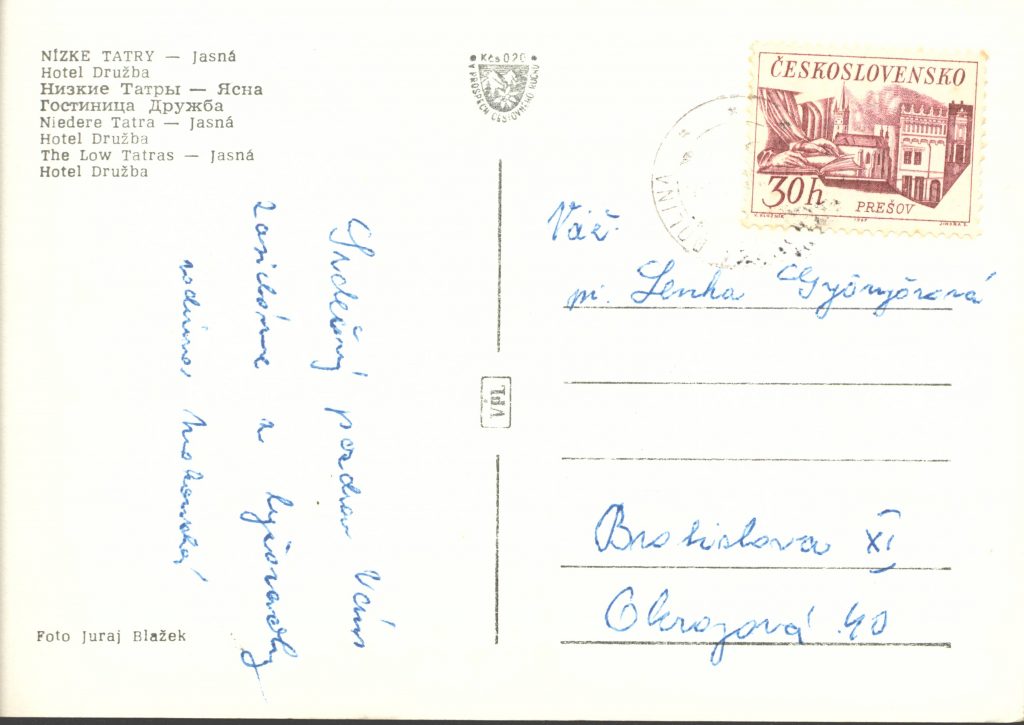 NÍZKE TATRY — Jasná
Hotel Družba
Низкие Татры — Ясна
Гостиница Дружба
Niedere Tatra — Jasná
Hotel Družba
The Low Tatras — Jasná
Hotel Družba
Kčs 0.20
V PROSPECH CESTOVNÉHO RUCHU
ČESKOSLOVENSKO
30h
PREŠOV
DOLINA
Srdečný pozdrav Vám
zasielame z lyžovačky
rodina
Váž.
pí. Lenka Györgyová
Bratislava XI
Okrazová 40
Foto Juraj Blažek